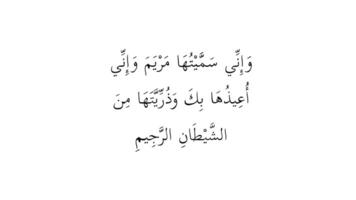 وَإِنِّي سَمَّيْتُهَا مَرْيَمَ وَإِنِّي
أُعِيذُهَا بِكَ وَذُرِّيَّتَهَا مِنَ
الشَّيْطَانِ الرَّجِيمِ